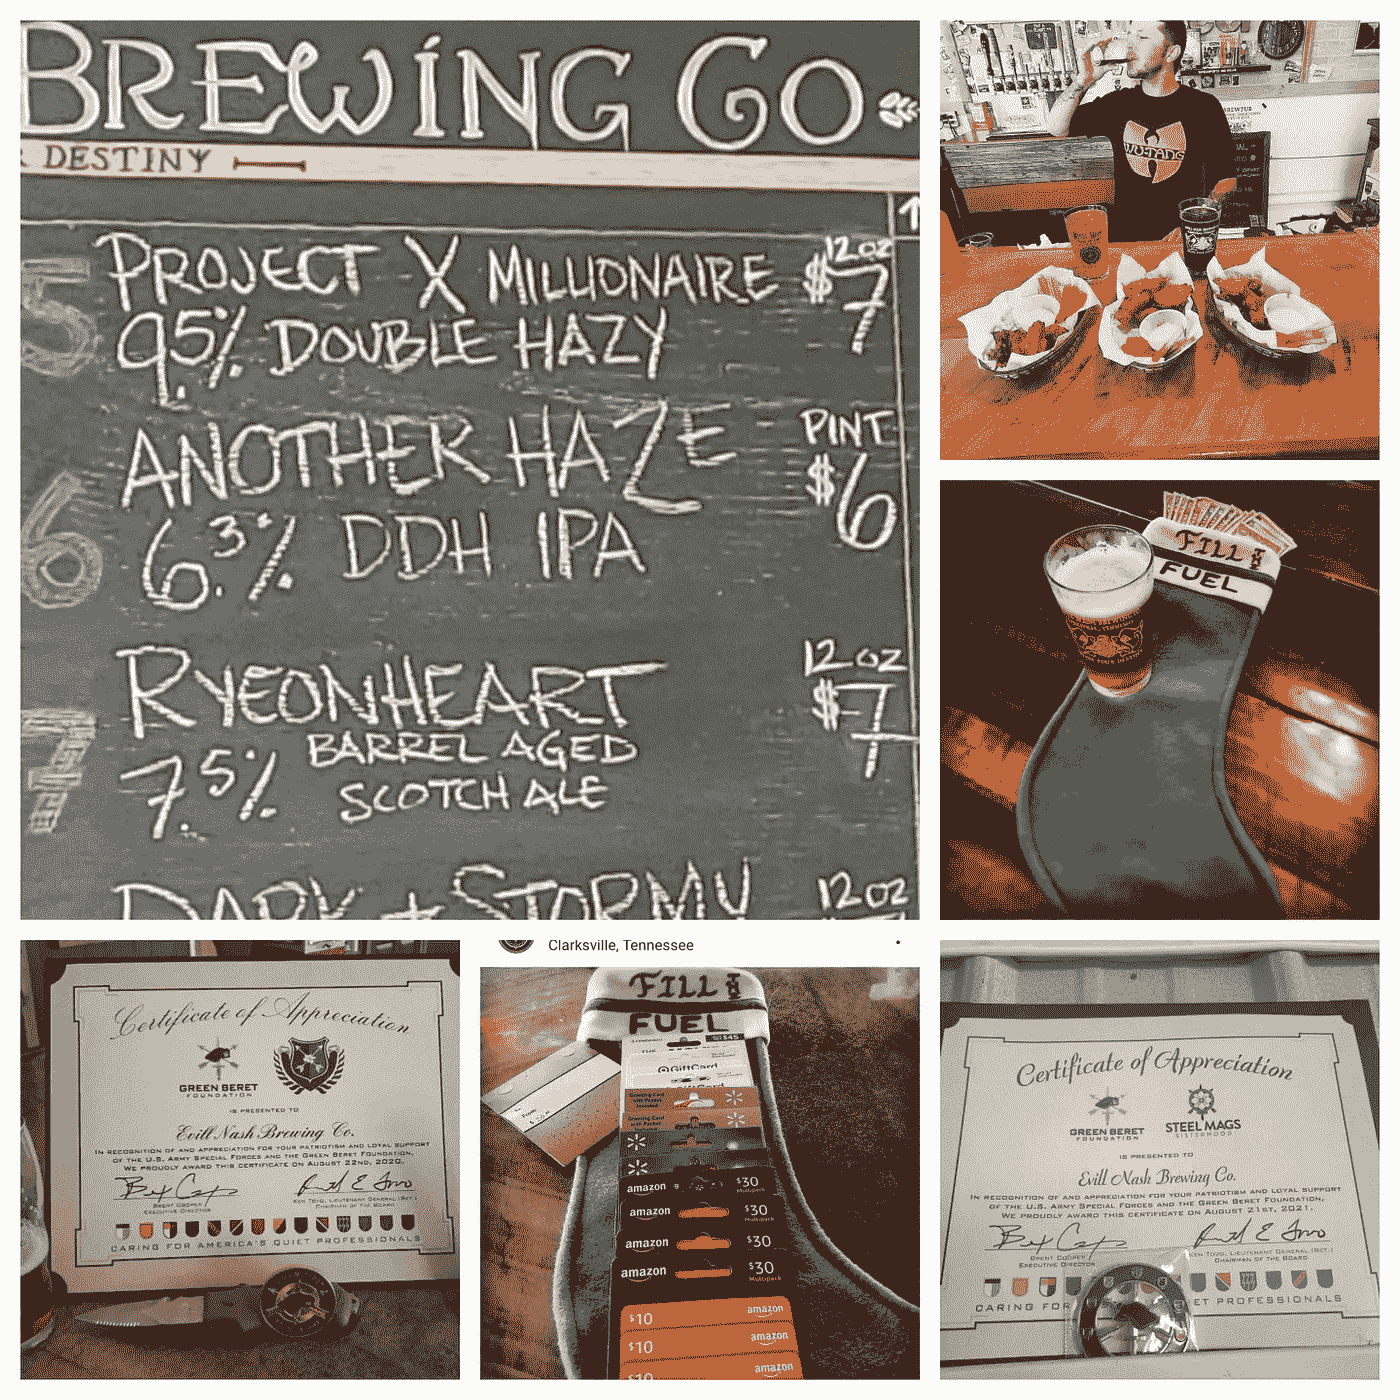 BREWING CO
DESTINY
5
PROJECT X MILLIONAIRE
12 oz
$7
9.5% DOUBLE HAZY
6
ANOTHER HAZE
PINT
$6
6.3% DDH IPA
7
RYEONHEART
12 oz
$7
BARREL AGED
7.5%
SCOTCH ALE
DARK + STORMY
12 oz
WU-TANG
FILL THE
FUEL
Certificate of Appreciation
GREEN BERET
FOUNDATION
IS PRESENTED TO
Evill Nash Brewing Co.
IN RECOGNITION OF AND APPRECIATION FOR YOUR PATRIOTISM AND LOYAL SUPPORT
OF THE U.S. ARMY SPECIAL FORCES AND THE GREEN BERET FOUNDATION,
WE PROUDLY AWARD THIS CERTIFICATE ON AUGUST 22ND, 2020.
BRENT COOPER
EXECUTIVE DIRECTOR
KEN TOVO, LIEUTENANT GENERAL (RET.)
CHAIRMAN OF THE BOARD
CARING FOR AMERICA'S QUIET PROFESSIONALS
Clarksville, Tennessee
FILL THE
FUEL
$45
GiftCard
GiftCard
Greeting Card
with Pocket
Included
Greeting Card
with Pocket
amazon $30
Multipack
amazon $30
amazon $30
amazon $30
Multipack
$10 amazon
$10 amazon
$10 amazon
Certificate of Appreciation
GREEN BERET
FOUNDATION
STEEL MAGS
SISTERHOOD
IS PRESENTED TO
Evill Nash Brewing Co.
IN RECOGNITION OF AND APPRECIATION FOR YOUR PATRIOTISM AND LOYAL SUPPORT
OF THE U.S. ARMY SPECIAL FORCES AND THE GREEN BERET FOUNDATION,
WE PROUDLY AWARD THIS CERTIFICATE ON AUGUST 21ST, 2021.
BRENT COOPER
EXECUTIVE DIRECTOR
KEN TOVO, LIEUTENANT GENERAL (RET.)
CHAIRMAN OF THE BOARD
CARING FOR
ET PROFESSIONALS